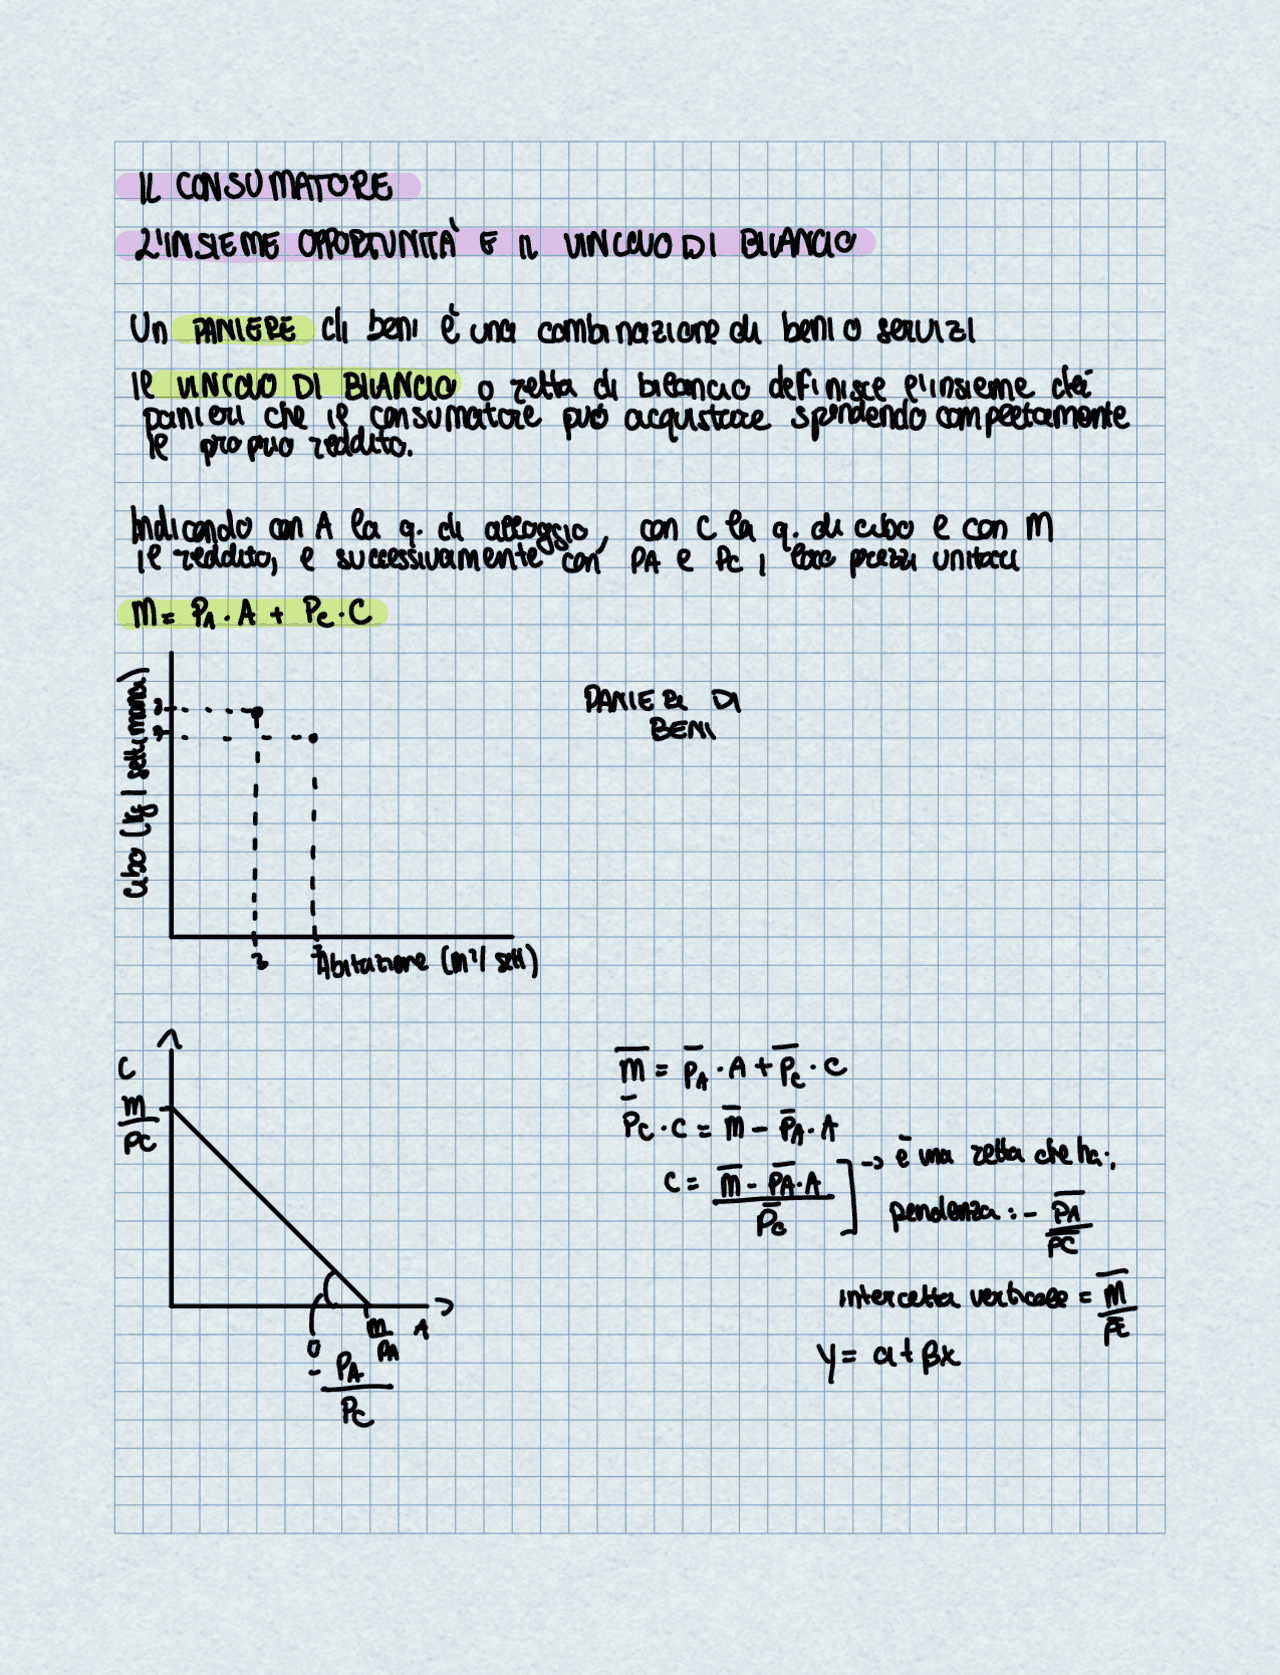 IL CONSUMATORE
L'INSIEME OPPORTUNITÀ E IL VINCOLO DI BILANCIO
Un PANIERE di beni è una combinazione di beni o servizi
Il VINCOLO DI BILANCIO o retta di bilancio definisce l'insieme dei
panieri che il consumatore può acquistare spendendo completamente
il proprio reddito.
Indicando con A la q. di alloggio, con C la q. di cibo e con M
il reddito, e successivamente con PA e PC i loro prezzi unitari
M = PA · A + PC · C
Cibo (Kg / settimana)
PANIERI DI
BENI
Abitazione (m²/ sett)
C
M/PC
M/PA
A
- PA/PC
M̄ = P̄A · A + P̄C · C
P̄C · C = M̄ - P̄A · A
C = (M̄ - P̄A · A)/P̄C
-> è una retta che ha:
pendenza: - P̄A/P̄C
intercetta verticale = M̄/P̄C
Y = α + βx